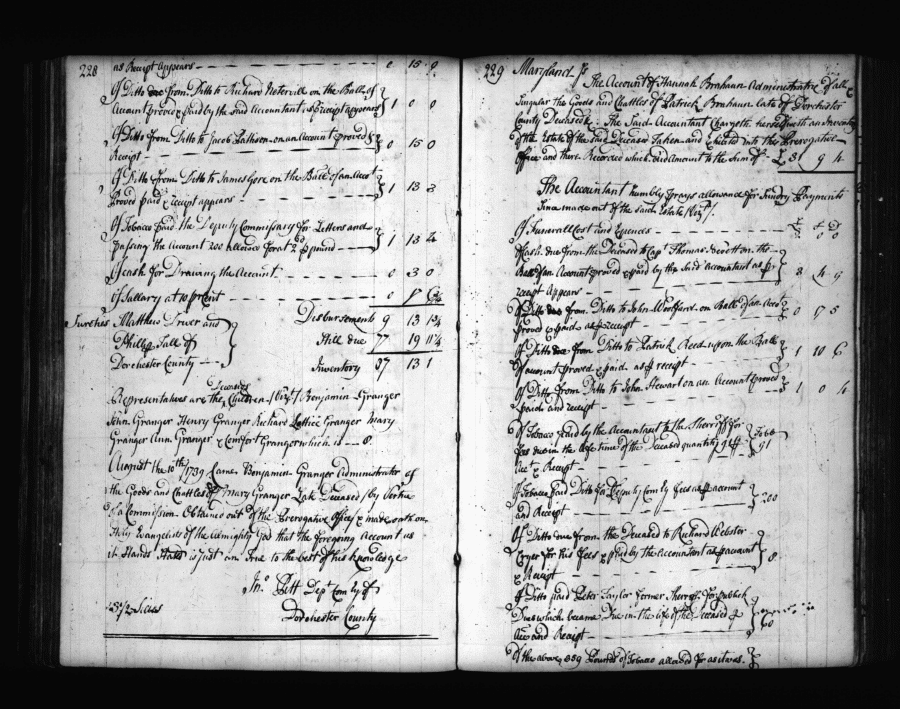 228
as Receipt Appears 0 15 9
Of Ditto due from Ditto to Richard Netervill on the Ball of
Account proved & paid by the said Accountant as receipt appears 1 0 0
Of Ditto from Ditto to Jacob on an Account proved &
Receipt 0 15 0
Of Ditto from Ditto to James Gore on the Ball of an Acct
proved paid & receipt appears 1 13 3
Of Tobacco paid the Deputy Commissary for Letters and
passing the Account 200 allowed for at 2d p pound 1 13 4
Of Cash for Drawing the Account 0 3 0
Of Sallary at 10 p Cent 0
Sureties Matthew Driver and Disbursements 9 13 1¾
Phillip Tall of Still due 77 19 11¼
Dorchester County Inventory 87 13 1
Representatives are the Deceaseds Children (Vizt) Benjamin Granger
John Granger Henry Granger Richard Lettice Granger Mary
Granger Ann Granger & Comfort Granger which is 8.
August the 10th 1739 Came Benjamin Granger Administrator of
the Goods and Chattles of Mary Granger Late Deceased (by Vertue
of a Commission Obtained out of the Prerogative Office) & made oath on
Holy Evangelists of the Almighty God that the foregoing Account as
it Stands Stated is just and True to the best of his knowledge
Jno Pitt Depty Comry of
Dorchester County
3 1/2 Sides
229
Maryland Ss
The Account of Hannah Brahaun Administratrix of all &
Singular the Goods and Chattles of Patrick Brahaun late of Dorchester
County Deceased &c. The Said Accountant Chargeth herself with an Inventory
of the Estate of the said Deceased Taken and Exhibited into the Prerogative
Office and there Recorded which did amount to the Sum of £31 9 4
The Accountant humbly prays allowance for Sundry Payments
Since made out of the said Estate Vizt.
Of Funerall Cost and Expences
Of Cash due from the Deceased to Capt Thomas on the
Ball of an Account proved & paid by the said Accountant as p
receipt Appears 3 4 9
Of Ditto due from Ditto to John on Ball of an Acco
proved & paid as p receipt 0 17 5
Of Ditto due from Ditto to Patrick Reed upon the Ball
of account proved & paid as p receipt 1 10 6
Of Ditto from Ditto to John Stewart on an Account proved
& paid and receipt 1 0 4
Of Tobacco paid by the Accountant to the Sherriff for
fees due in the life time of the Deceased quantity as p
Acct & Receipt 91
Of Tobacco Paid Ditto for Deputy Comry fees as p account
and Receipt 200
Of Ditto due from the Deceased to Richard Webster
for his fees & paid by the Accountant as p account
& Receipt 8
Of Ditto paid Peter Taylor former Sherriff for publick
Dues which became Due in the life of the Deceased p
Acc and Receipt 60
Of the above 359 Pounds of Tobacco allowed for as it was